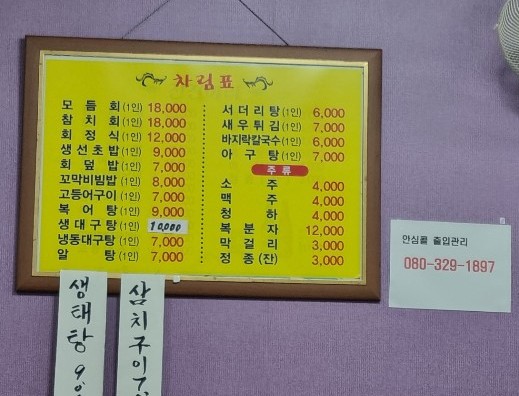 차림표
모듬회(1인) 18,000
참치회(1인) 18,000
회정식(1인) 12,000
생선초밥(1인) 9,000
회덮밥(1인) 7,000
꼬막비빔밥(1인) 8,000
고등어구이(1인) 7,000
복어탕(1인) 9,000
생대구탕(1인) 10,000
냉동대구탕(1인) 7,000
알탕(1인) 7,000
서더리탕(1인) 6,000
새우튀김(1인) 7,000
바지락칼국수(1인) 6,000
아구탕(1인) 7,000
주류
소주 4,000
맥주 4,000
청하 4,000
복분자 12,000
막걸리 3,000
정종(잔) 3,000
안심콜 출입관리
080-329-1897
생태탕
삼치구이